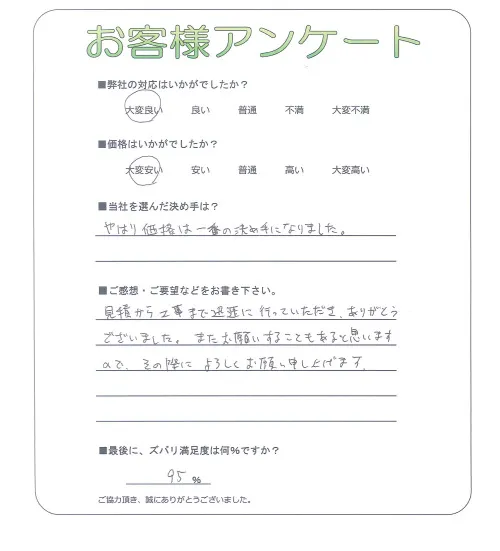 お客様アンケート
■弊社の対応はいかがでしたか？
大変良い 良い 普通 不満 大変不満
■価格はいかがでしたか？
大変安い 安い 普通 高い 大変高い
■当社を選んだ決め手は？
やはり価格は一番の決め手になりました。
■ご感想・ご要望などをお書き下さい。
見積から工事まで迅速に行っていただき、ありがとう
ございました。またお願いすることもあると思います
ので、その際によろしくお願い申し上げます。
■最後に、ズバリ満足度は何％ですか？
95 ％
ご協力頂き、誠にありがとうございました。